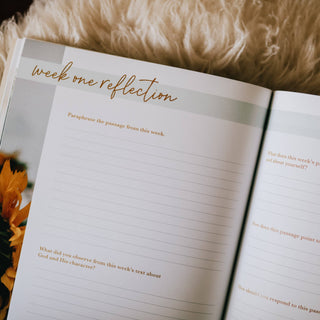 week one reflection
Paraphrase the passage from this week.
What did you observe from this week's text about
God and His character?
does this week's
about yourself?
does this passage point
you respond to this